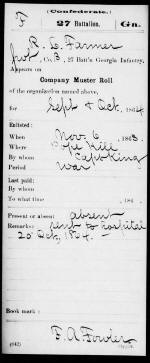 F (Confederate.)
27 Battalion, Ga.
R. L. Farmer
Pvt, Co. B, 27 Batt'n Georgia Infantry,
Appears on
Company Muster Roll
of the organization named above,
for Sept & Oct, 1864
Enlisted:
When Nov. 6, 1863
Where
By whom Capt King
Period war
Last paid:
By whom
To what time , 186 .
Present or absent absent
Remarks: sent to hospital
20 Oct, 1864.
Book mark:
(642) F. A. Fowler